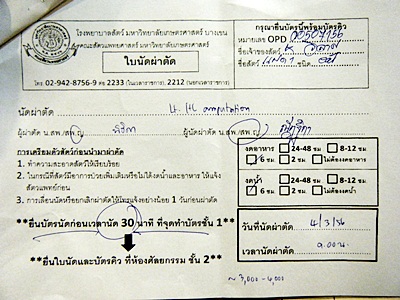 โรงพยาบาลสัตว์ มหาวิทยาลัยเกษตรศาสตร์ บางเขน
คณะสัตวแพทยศาสตร์ มหาวิทยาลัยเกษตรศาสตร์
ใบนัดผ่าตัด
โทร 02-942-8756-9 ต่อ 2233 (ในเวลาราชการ), 2212 (นอกเวลาราชการ)
กรุณายื่นบัตรนี้พร้อมบัตรคิว
หมายเลข OPD
ชื่อเจ้าของสัตว์ K
ชื่อสัตว์ ชนิด
นัดผ่าตัด HL amputation
ผู้ผ่าตัด น.สพ./สพ.ญ. ผู้นัดผ่าตัด น.สพ./สพ.ญ.
การเตรียมตัวสัตว์ก่อนนำมาผ่าตัด
1. ทำความสะอาดสัตว์ให้เรียบร้อย
2. ในกรณีที่สัตว์มีอาการป่วยเพิ่มเติมหรือไม่ได้งดน้ำและอาหาร ให้แจ้ง
สัตวแพทย์ก่อน
3. การเลื่อนนัดหรือยกเลิกผ่าตัดให้โทรแจ้งอย่างน้อย 1 วันก่อนผ่าตัด
งดอาหาร 24-48 ชม. 8-12 ชม.
6 ชม. 2 ชม. ไม่ต้องงดอาหาร
งดน้ำ 24-48 ชม. 8-12 ชม.
6 ชม. 2 ชม. ไม่ต้องงดน้ำ
**ยื่นบัตรนัดก่อนเวลานัด 30 นาที ที่จุดทำบัตรชั้น 1**
**ยื่นใบนัดและบัตรคิว ที่ห้องศัลยกรรม ชั้น 2**
วันที่นัดผ่าตัด 4/3/56
เวลานัดผ่าตัด 9.00 น.
~ 3,000 - 4,000